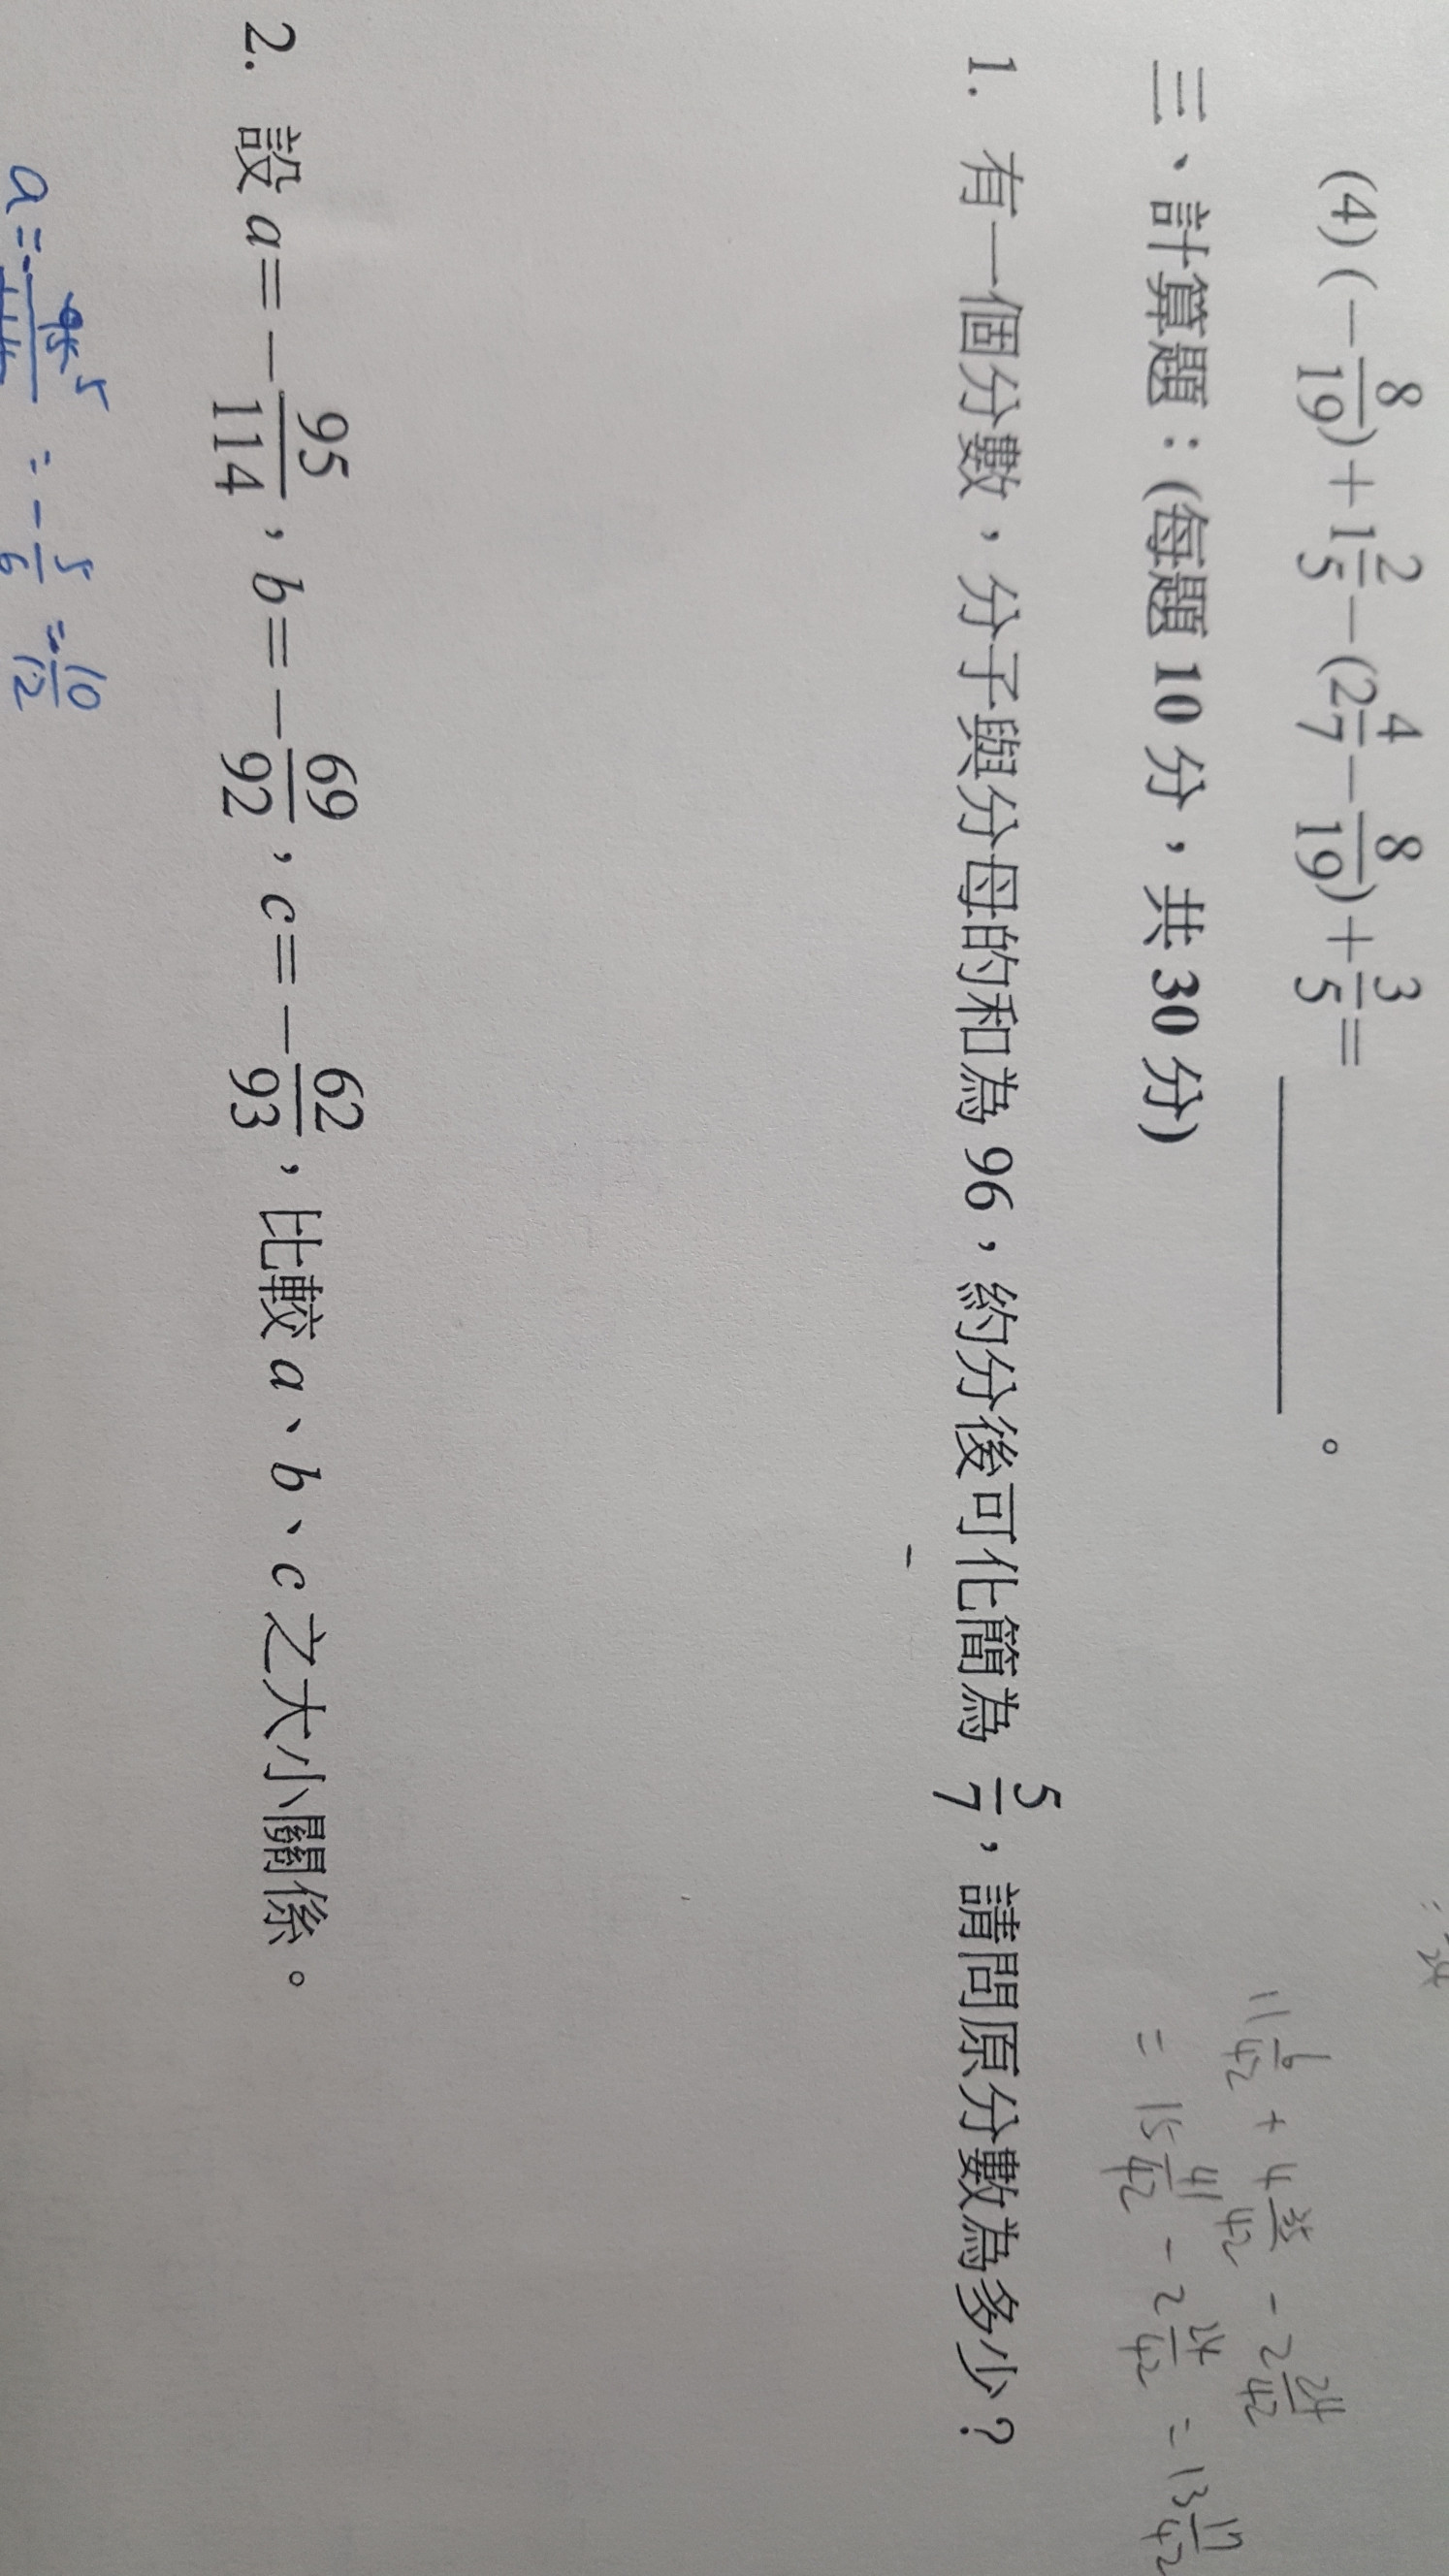 (4) (－8/19)＋1 2/5－(2 4/7－8/19)＋3/5＝＿＿＿＿。
11 6/42 + 4 35/42 - 2 24/42
三、計算題：(每題 10 分，共 30 分)
= 15 41/42 - 2 24/42 = 13 17/42
1. 有一個分數，分子與分母的和為 96，約分後可化簡為 5/7，請問原分數為多少？
2. 設 a＝－95/114，b＝－69/92，c＝－62/93，比較 a、b、c 之大小關係。
= - 5/6 = - 10/12